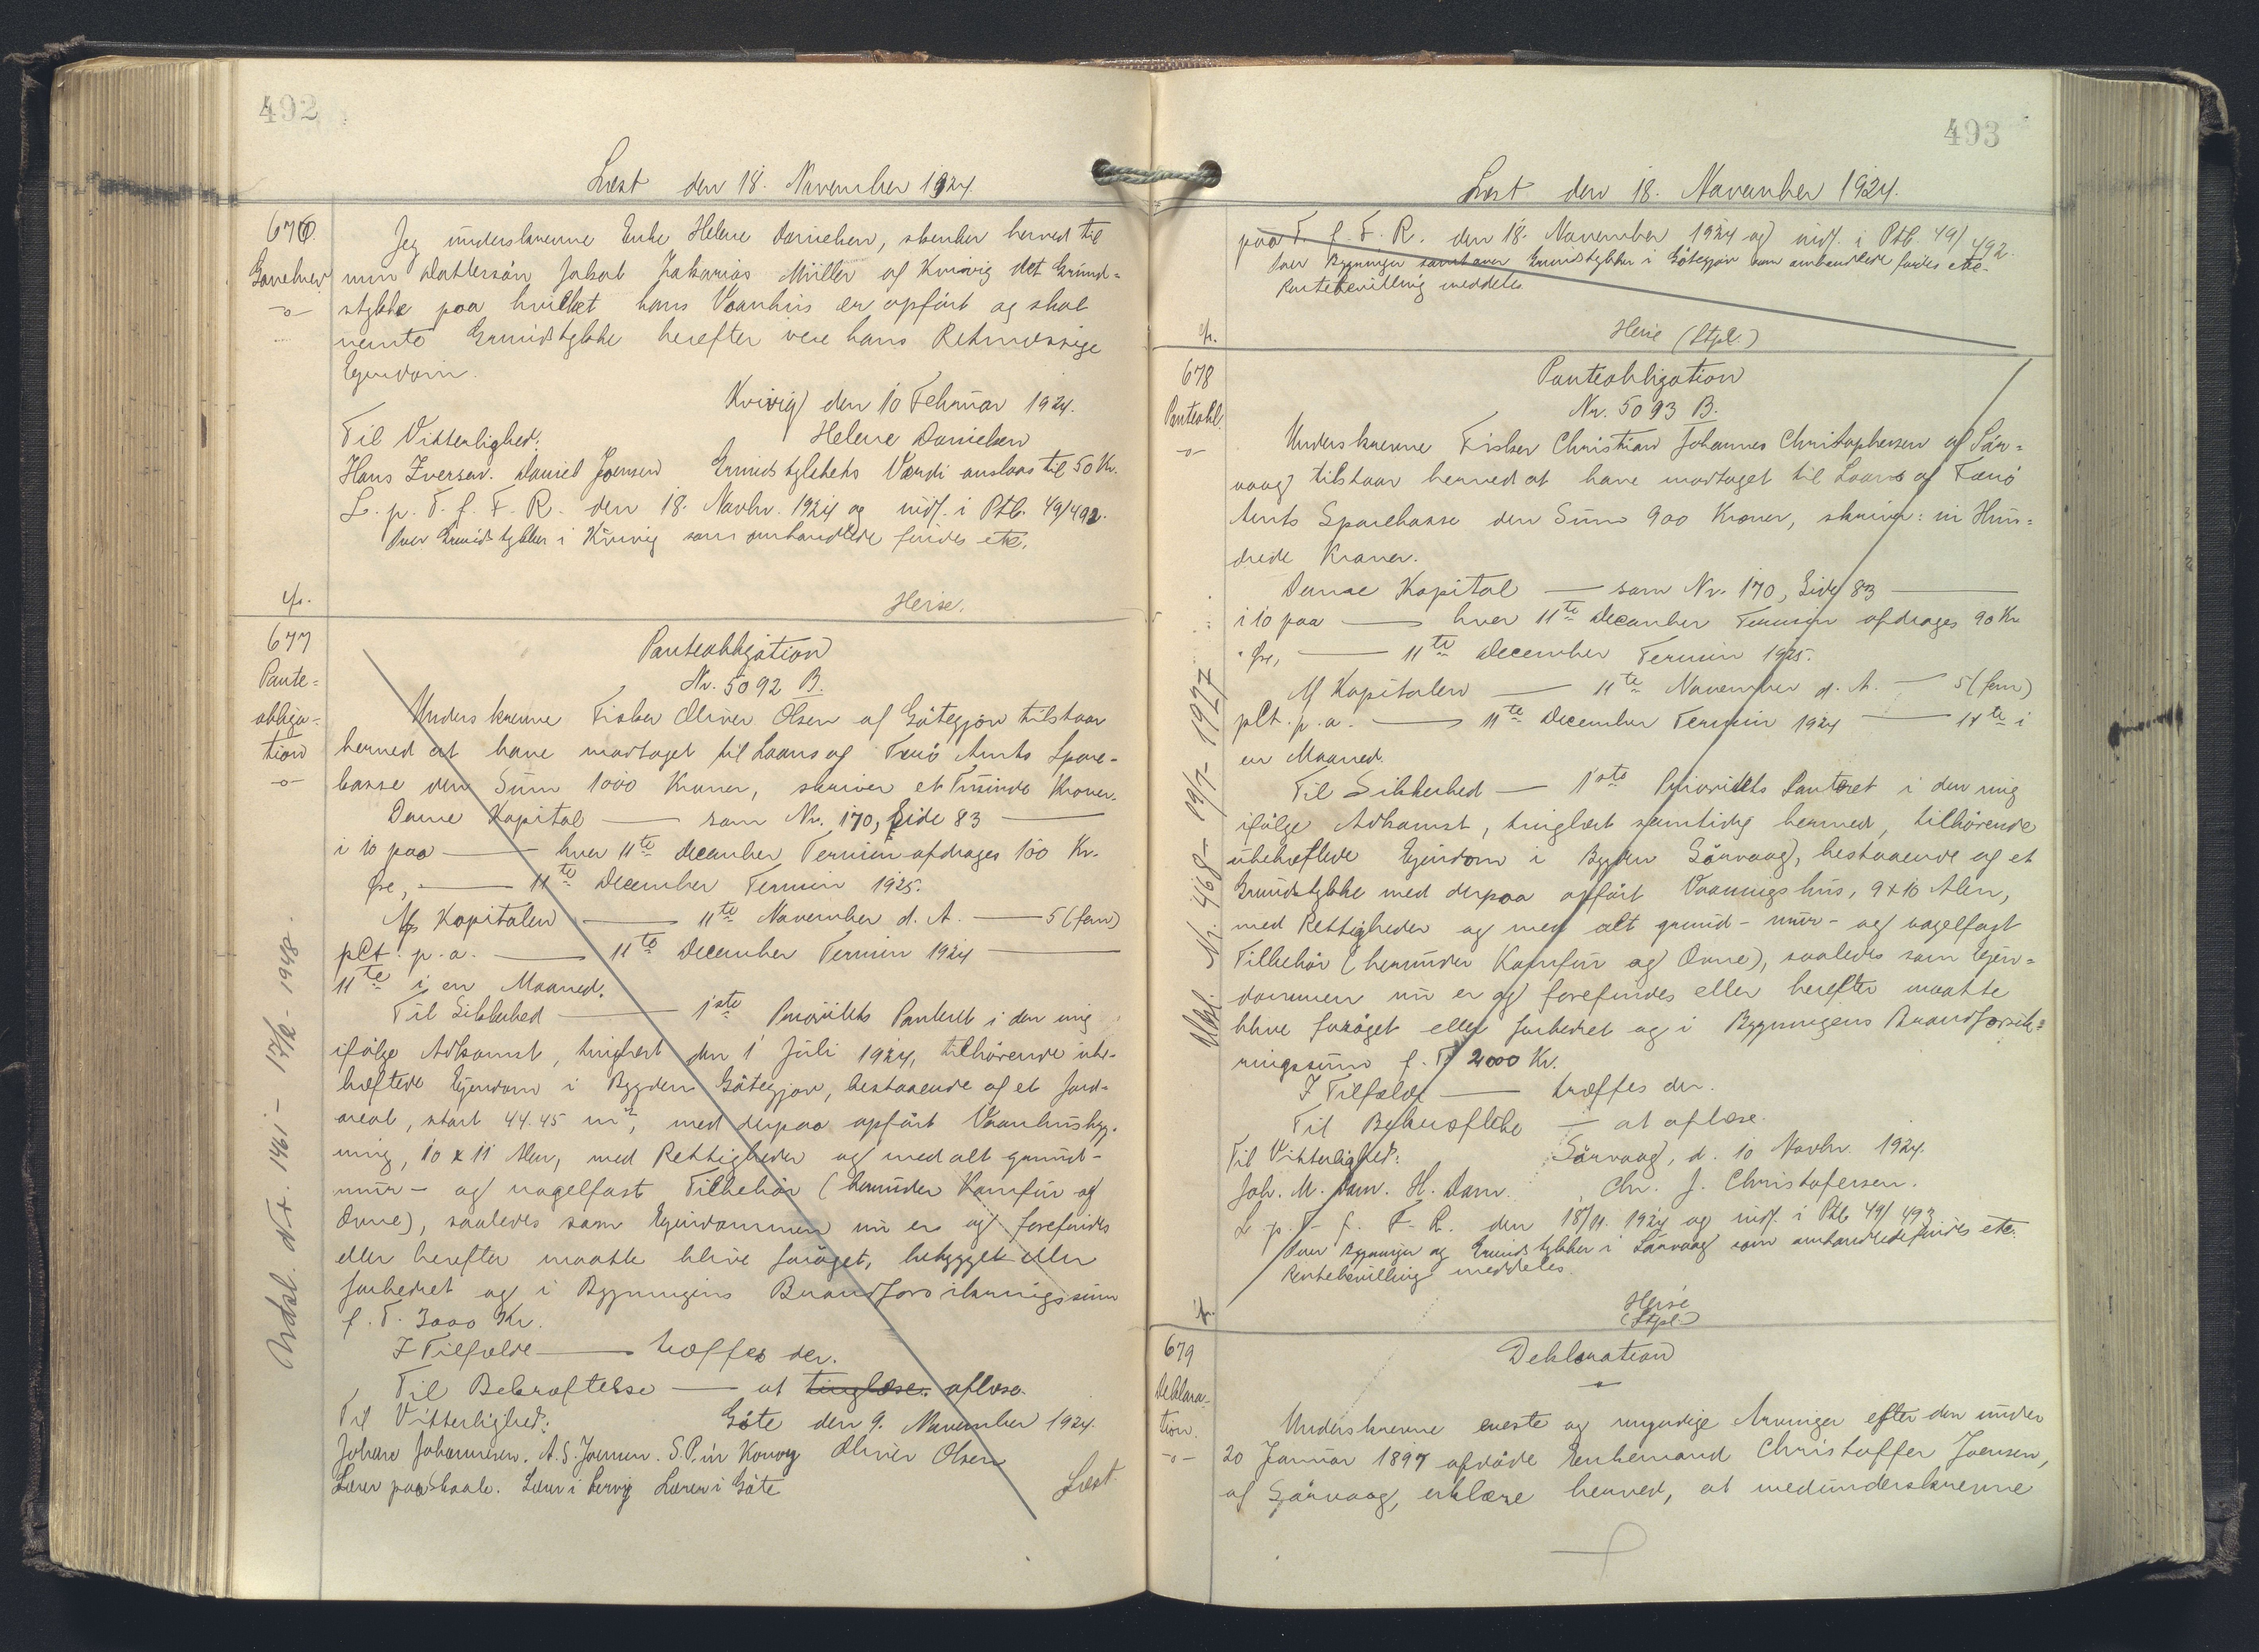 492
Læst den 18. November 1924.
676.
Gavebrev
-o-
Jeg underskrevne Enke Helene Danielsen, skenker herved til
min Dattersøn Jakob Zakarias Müller af Kvivig det Grund=
stykke paa hvilket hans Vaanhus er opført og skal
nemte Grundstykke herefter vere hans Retmessige
Ejendom.
Kvivig den 10 Februar 1924.
Til Vitterlighed:
Helene Danielsen
Hans Iversen. Daniel Joensen Grundstykkets Værdi anslaas til 50 Kr.
L. p. T. f. F. R. den 18. Novbr. 1924 og indf. i Ptb. 49/492.
Over Grundstykker i Kvivig som omhandlede findes etc.
Heise.
677
Pante=
obliga=
tion
-o-
Panteobligation
Nr. 5092 B.
Underskrevne Fisker Oliver Olsen af Gøtegjov tilstaar
herved at have modtaget til Laans af Færø Amts Spare-
kasse den Sum 1000 Kroner, skriver et Tusinde Kroner.
Denne Kapital — som Nr. 170, Side 83 —
i 10 paa — hver 11te December Termin afdrages 100 Kr.
Øre, — 11te December Termin 1925.
Af Kapitalen — 11te November d. A. — 5 (fem)
pCt. p. a. — 11te December Termin 1924 —
11te i en Maaned.
Til Sikkerhed — 1ste Prioritets Panteret i den mig
ifølge Adkomst, tinglæst den 1 Juli 1924, tilhørende ube-
hæftede Ejendom i Bygden Gøtegjov, bestaaende af et Jord-
areal, stort 44.45 m², med derpaa opført Vaanhusbyg-
ning, 10 x 11 Alen, med Rettigheder og med alt grund-
mur- og nagelfast Tilbehør (herunder Komfur og
Ovne), saaledes som Ejendommen nu er og forefindes
eller herefter maatte blive forøget, bebygget eller
forbedret og i Bygningens Brandforsikringssum
f. T. 3000 Kr.
I Tilfælde — træffes der.
Til Bekræftelse — at tinglæse. aflæse.
Til Vitterlighed:
Gøte den 9. November 1924.
Johan Johannesen. A. S. Joensen. S. P. úr Konoy Oliver Olsen
Lærer paa Skaale. Lærer i Lervig Lærer i Gøte
Læst
Udsl. Nr. 1461 - 17/12 - 1948.
493
Læst den 18. November 1924.
paa T. f. F. R. den 18. November 1924 og indf. i Ptb. 49/492.
Over Bygninger samt over Grundstykker i Gøtegjov som omhandlede findes etc.
Rentebevilling meddeles
Heise (Stpl.)
678
Panteobl.
-o-
Panteobligation
Nr. 5093 B.
Underskrevne Fisker Christian Johannes Christophersen af Sør=
vaag tilstaar herved at have modtaget til Laans af Færø
Amts Sparekasse den Sum 900 Kroner, skriver: ni Hun=
drede Kroner.
Denne Kapital — som Nr. 170, Side 83 —
i 10 paa — hver 11te December Termin afdrages 90 Kr
" Øre, — 11te December Termin 1925.
Af Kapitalen — 11te November d. A. — 5 (fem)
pCt. p. a. — 11te December Termin 1924 — 11te i
en Maaned.
Til Sikkerhed — 1ste Prioritets Panteret i den mig
ifølge Adkomst, tinglæst samtidig hermed, tilhørende
ubehæftede Ejendom i Bygden Sørvaag, bestaaende af et
Grundstykke med derpaa opført Vaaningshus, 9 x 10 Alen,
med Rettigheder og med alt grund- mur- og nagelfast
Tilbehør (herunder Komfur og Ovne), saaledes som Ejen=
dommen nu er og forefindes eller herefter maatte
blive forøget eller forbedret og i Bygningens Brandforsik=
ringssum f. T. 2000 Kr.
I Tilfælde — træffes der.
Til Bekræftelse — at aflæse.
Til Vitterlighed:
Sørvaag, d. 10 Novbr. 1924.
Joh. M. Dam. H. Dam. Chr. J. Christofersen.
L. p. T. f. F. R. den 18/11. 1924 og indf. i Ptb 49/493
Over Bygninger og Grundstykker i Sørvaag som omhandlede findes etc.
Rentebevilling meddeles.
Heise
(Stpl.)
Nr. 468 - 19/7 - 1927
679
Deklara-
tion.
-o-
Deklaration
Underskrevne eneste og myndige Arvinger efter den under
20 Januar 1897 afdøde Enkemand Christoffer Joensen,
af Sørvaag, erklære herved, at medunderskrevne